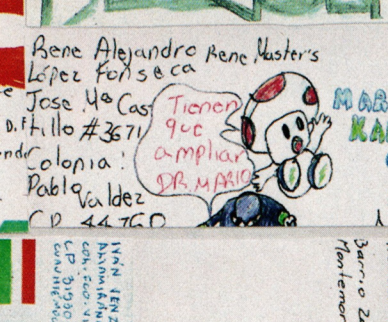 Rene Alejandro Rene, Master's
López Fonseca
Jose Mª Cas
tillo #3671
Colonia:
Pablo Valdez
CP. 44760
Tienen
que
ampliar
DR. MARIO
MAR
KA
D.F
Barrio
Montemor
IVÁN VENZ
ALTAMIRAN